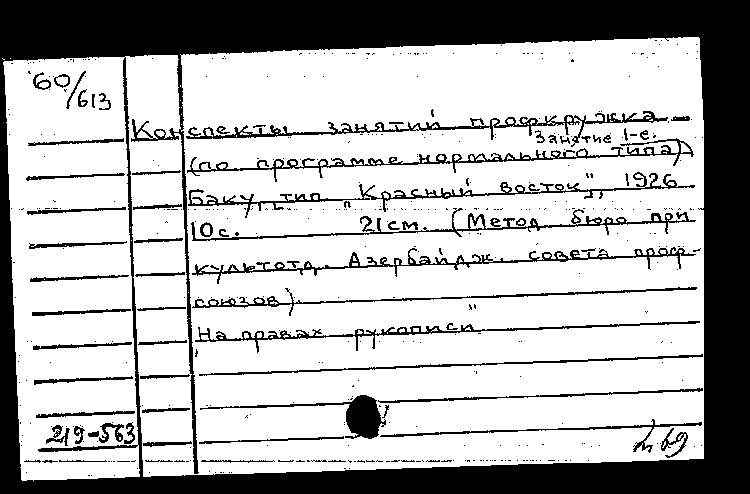 60/613
Конспекты занятий профкружка –
Занятие 1-е.
(по программе нормального типа)
Баку, тип. "Красный восток", 1926
10 с. 21 см. (Метод. бюро при
культотд. Азербайдж. совета проф-
союзов).
На правах рукописи"
219-563
69